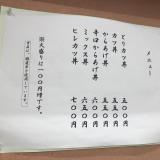 メニュー
とりカツ丼 五五〇円
カツ丼 五五〇円
からあげ丼 五五〇円
辛口からあげ丼 六五〇円
ミックス丼 六五〇円
ヒレカツ丼 七〇〇円
※大盛りは一〇〇円増です。